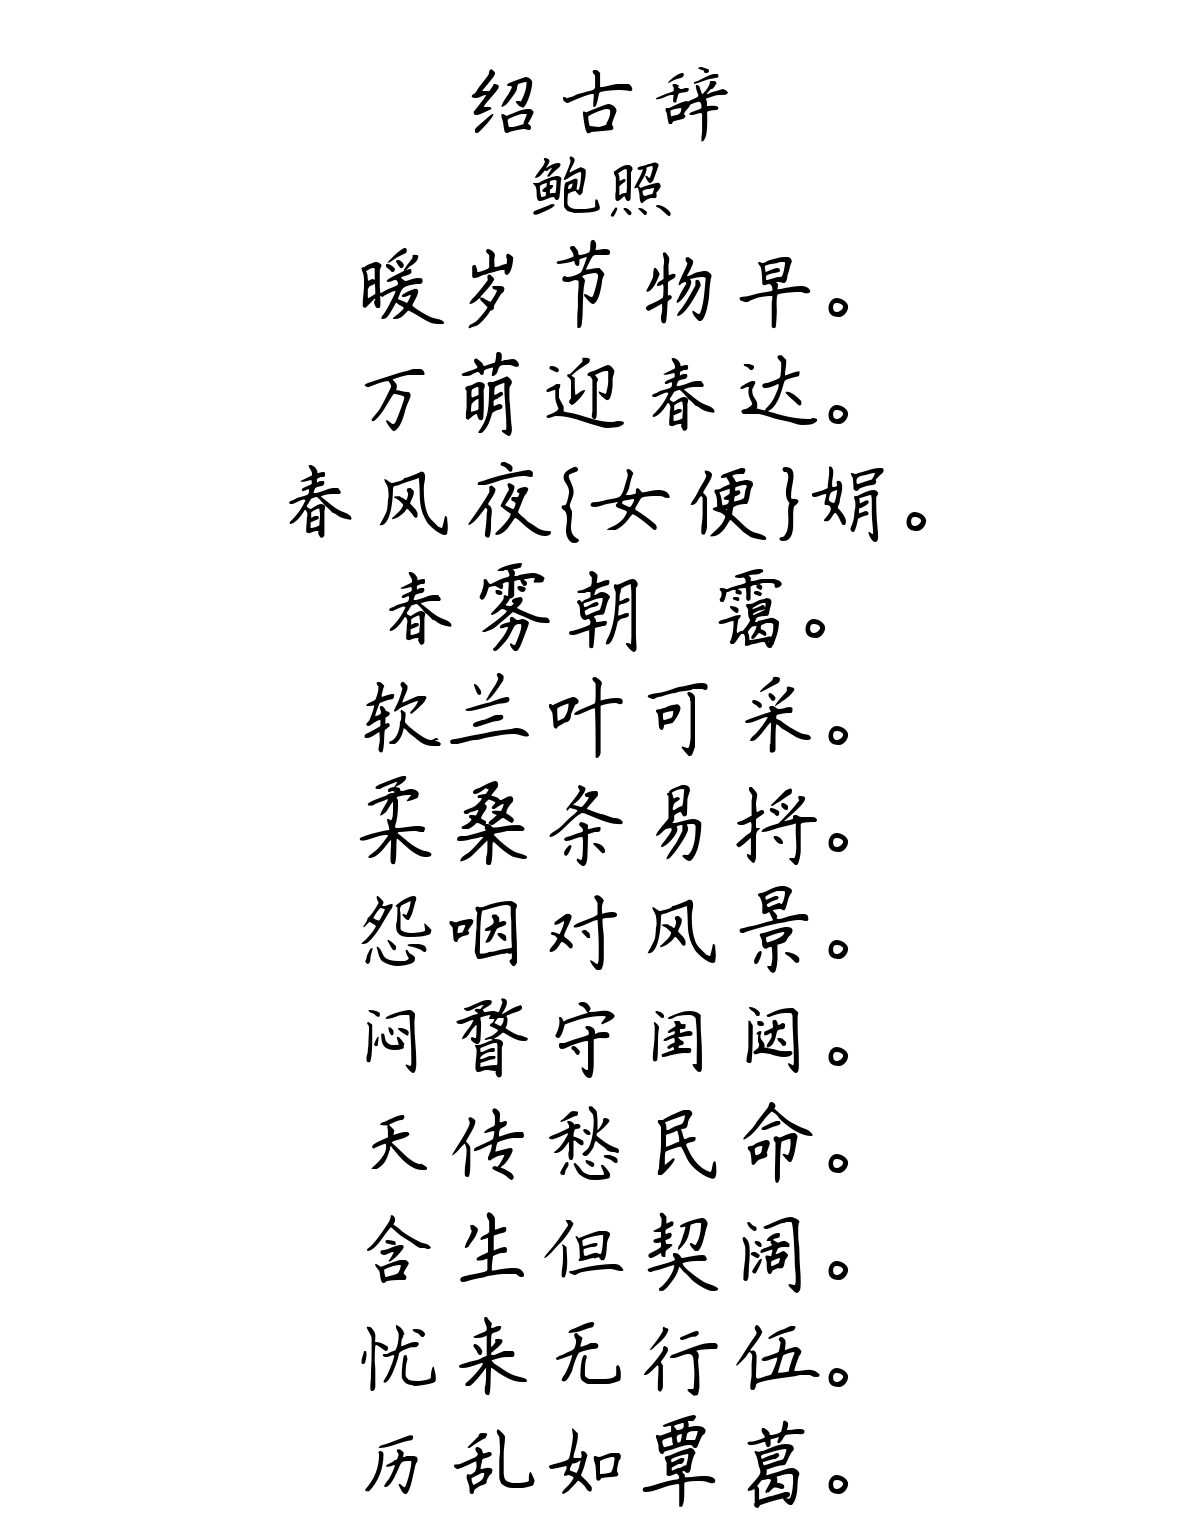 绍古辞
鲍照
暖岁节物早。
万萌迎春达。
春风夜{女便}娟。
春雾朝 霭。
软兰叶可采。
柔桑条易捋。
怨咽对风景。
闷瞀守闺闼。
天传愁民命。
含生但契阔。
忧来无行伍。
历乱如覃葛。